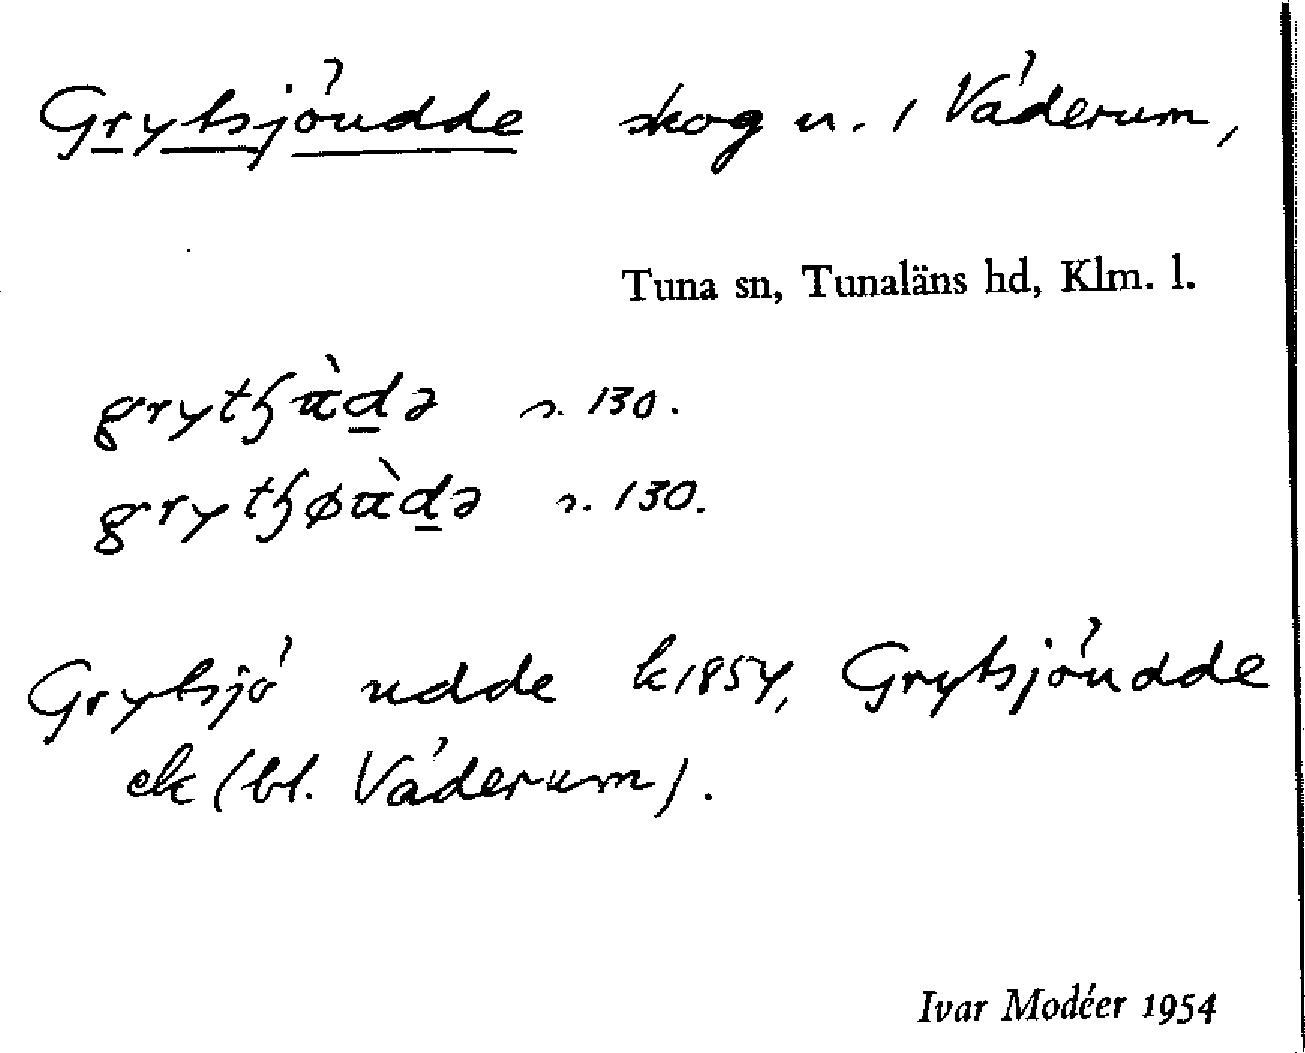 Grytsjöudde skog n. i Väderum,
Tuna sn, Tunaläns hd, Klm. l.
s. 130.
s. 130.
Grytsjö udde k 1854, Grytsjöudde
ek (bl. Väderum).
Ivar Modéer 1954